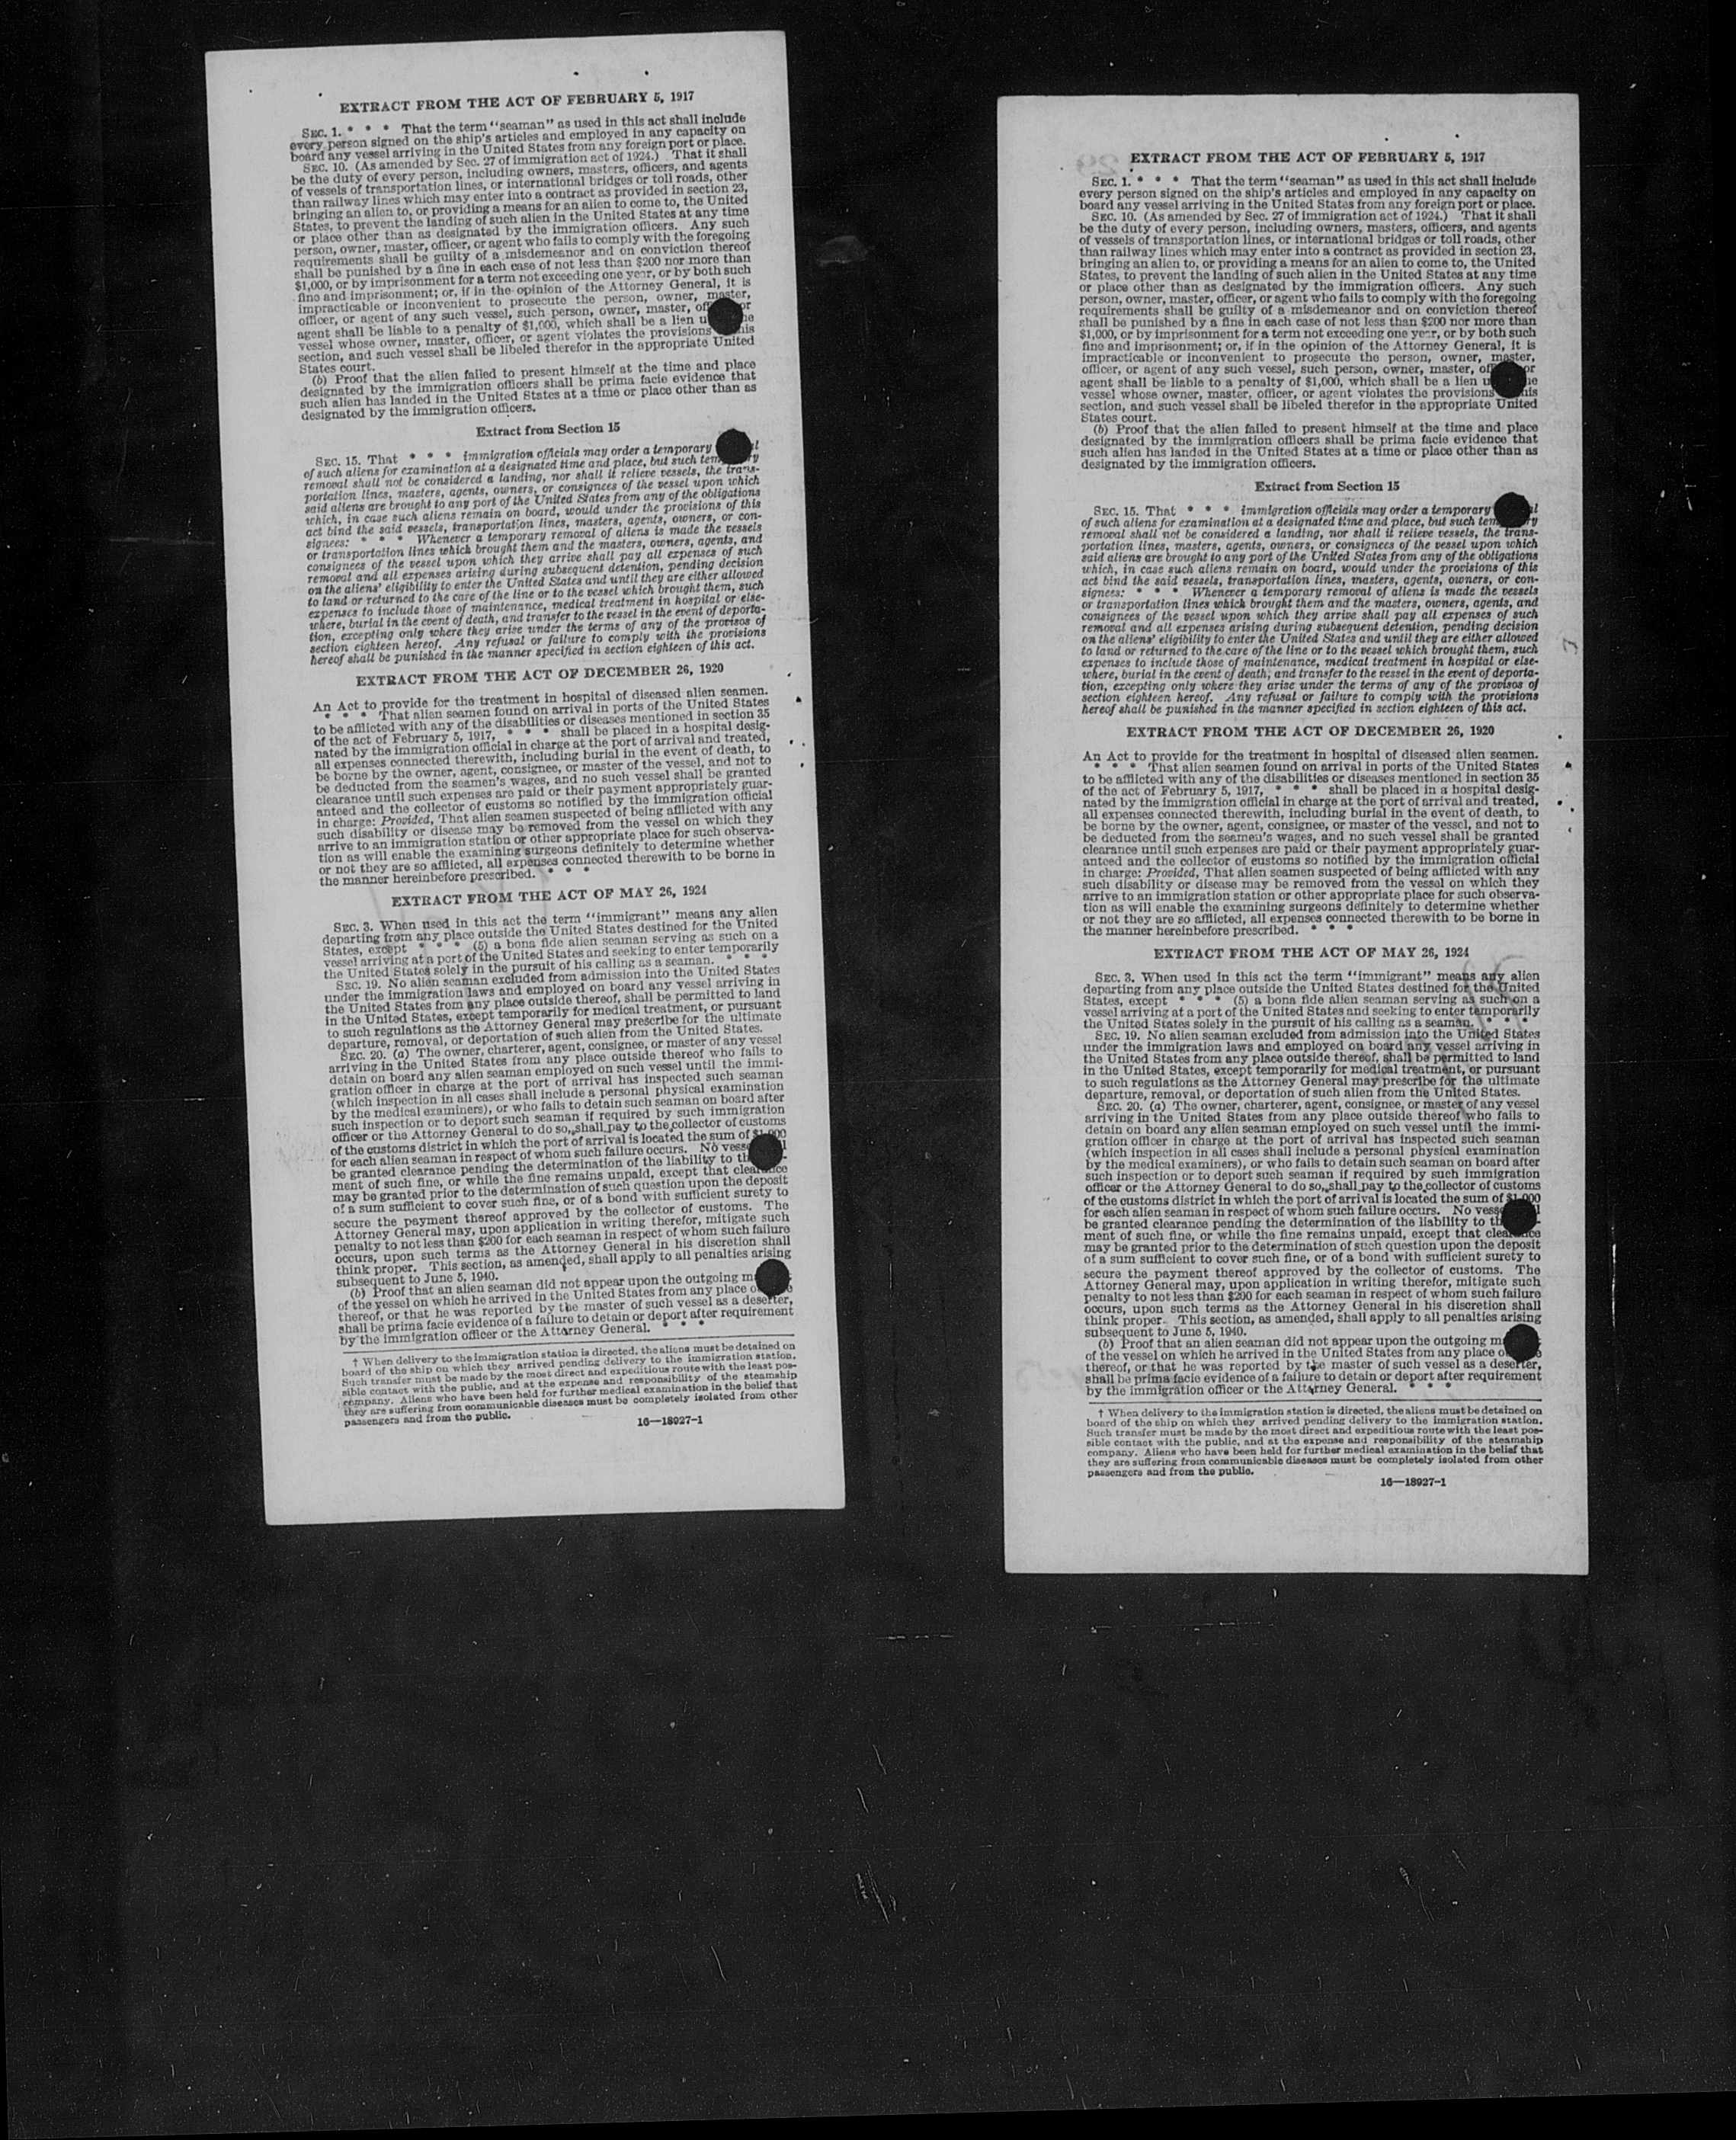 EXTRACT FROM THE ACT OF FEBRUARY 5, 1917
SEC. 1. * * * That the term "seaman" as used in this act shall include
every person signed on the ship's articles and employed in any capacity on
board any vessel arriving in the United States from any foreign port or place.
SEC. 10. (As amended by Sec. 27 of immigration act of 1924.) That it shall
be the duty of every person, including owners, masters, officers, and agents
of vessels of transportation lines, or international bridges or toll roads, other
than railway lines which may enter into a contract as provided in section 23,
bringing an alien to, or providing a means for an alien to come to, the United
States, to prevent the landing of such alien in the United States at any time
or place other than as designated by the immigration officers. Any such
person, owner, master, officer, or agent who fails to comply with the foregoing
requirements shall be guilty of a misdemeanor and on conviction thereof
shall be punished by a fine in each case of not less than $200 nor more than
$1,000, or by imprisonment for a term not exceeding one year, or by both such
fine and imprisonment; or, if in the opinion of the Attorney General, it is
impracticable or inconvenient to prosecute the person, owner, master,
officer, or agent of any such vessel, such person, owner, master, or
agent shall be liable to a penalty of $1,000, which shall be a lien
vessel whose owner, master, officer, or agent violates the provisions
section, and such vessel shall be libeled therefor in the appropriate United
States court.
(b) Proof that the alien failed to present himself at the time and place
designated by the immigration officers shall be prima facie evidence that
such alien has landed in the United States at a time or place other than as
designated by the immigration officers.
Extract from Section 15
SEC. 15. That * * * immigration officials may order a temporary
of such aliens for examination at a designated time and place, but such
removal shall not be considered a landing, nor shall it relieve vessels, the trans-
portation lines, masters, agents, owners, or consignees of the vessel upon which
said aliens are brought to any port of the United States from any of the obligations
which, in case such aliens remain on board, would under the provisions of this
act bind the said vessels, transportation lines, masters, agents, owners, or con-
signees: * * * Whenever a temporary removal of aliens is made the vessels
or transportation lines which brought them and the masters, owners, agents, and
consignees of the vessel upon which they arrive shall pay all expenses of such
removal and all expenses arising during subsequent detention, pending decision
on the aliens' eligibility to enter the United States and until they are either allowed
to land or returned to the care of the line or to the vessel which brought them, such
expenses to include those of maintenance, medical treatment in hospital or else-
where, burial in the event of death, and transfer to the vessel in the event of deporta-
tion, excepting only where they arise under the terms of any of the provisos of
section eighteen hereof. Any refusal or failure to comply with the provisions
hereof shall be punished in the manner specified in section eighteen of this act.
EXTRACT FROM THE ACT OF DECEMBER 26, 1920
An Act to provide for the treatment in hospital of diseased alien seamen.
* * * That alien seamen found on arrival in ports of the United States
to be afflicted with any of the disabilities or diseases mentioned in section 35
of the act of February 5, 1917, * * * shall be placed in a hospital desig-
nated by the immigration official in charge at the port of arrival and treated,
all expenses connected therewith, including burial in the event of death, to
be borne by the owner, agent, consignee, or master of the vessel, and not to
be deducted from the seamen's wages, and no such vessel shall be granted
clearance until such expenses are paid or their payment appropriately guar-
anteed and the collector of customs so notified by the immigration official
in charge: Provided, That alien seamen suspected of being afflicted with any
such disability or disease may be removed from the vessel on which they
arrive to an immigration station or other appropriate place for such observa-
tion as will enable the examining surgeons definitely to determine whether
or not they are so afflicted, all expenses connected therewith to be borne in
the manner hereinbefore prescribed. * * *
EXTRACT FROM THE ACT OF MAY 26, 1924
SEC. 3. When used in this act the term "immigrant" means any alien
departing from any place outside the United States destined for the United
States, except * * * (5) a bona fide alien seaman serving as such on a
vessel arriving at a port of the United States and seeking to enter temporarily
the United States solely in the pursuit of his calling as a seaman. * * *
SEC. 19. No alien seaman excluded from admission into the United States
under the immigration laws and employed on board any vessel arriving in
the United States from any place outside thereof, shall be permitted to land
in the United States, except temporarily for medical treatment, or pursuant
to such regulations as the Attorney General may prescribe for the ultimate
departure, removal, or deportation of such alien from the United States.
SEC. 20. (a) The owner, charterer, agent, consignee, or master of any vessel
arriving in the United States from any place outside thereof who fails to
detain on board any alien seaman employed on such vessel until the immi-
gration officer in charge at the port of arrival has inspected such seaman
(which inspection in all cases shall include a personal physical examination
by the medical examiners), or who fails to detain such seaman on board after
such inspection or to deport such seaman if required by such immigration
officer or the Attorney General to do so, shall pay to the collector of customs
of the customs district in which the port of arrival is located the sum of $1,000
for each alien seaman in respect of whom such failure occurs. No
be granted clearance pending the determination of the liability to
ment of such fine, or while the fine remains unpaid, except that clearance
may be granted prior to the determination of such question upon the deposit
of a sum sufficient to cover such fine, or of a bond with sufficient surety to
secure the payment thereof approved by the collector of customs. The
Attorney General may, upon application in writing therefor, mitigate such
penalty to not less than $200 for each seaman in respect of whom such failure
occurs, upon such terms as the Attorney General in his discretion shall
think proper. This section, as amended, shall apply to all penalties arising
subsequent to June 5, 1940.
(b) Proof that an alien seaman did not appear upon the outgoing
of the vessel on which he arrived in the United States from any place
thereof, or that he was reported by the master of such vessel as a deserter,
shall be prima facie evidence of a failure to detain or deport after requirement
by the immigration officer or the Attorney General. * * *
† When delivery to the immigration station is directed, the aliens must be detained on
board of the ship on which they arrived pending delivery to the immigration station.
Such transfer must be made by the most direct and expeditious route with the least pos-
sible contact with the public, and at the expense and responsibility of the steamship
company. Aliens who have been held for further medical examination in the belief that
they are suffering from communicable diseases must be completely isolated from other
passengers and from the public.
16—18927-1
EXTRACT FROM THE ACT OF FEBRUARY 5, 1917
SEC. 1. * * * That the term "seaman" as used in this act shall include
every person signed on the ship's articles and employed in any capacity on
board any vessel arriving in the United States from any foreign port or place.
SEC. 10. (As amended by Sec. 27 of immigration act of 1924.) That it shall
be the duty of every person, including owners, masters, officers, and agents
of vessels of transportation lines, or international bridges or toll roads, other
than railway lines which may enter into a contract as provided in section 23,
bringing an alien to, or providing a means for an alien to come to, the United
States, to prevent the landing of such alien in the United States at any time
or place other than as designated by the immigration officers. Any such
person, owner, master, officer, or agent who fails to comply with the foregoing
requirements shall be guilty of a misdemeanor and on conviction thereof
shall be punished by a fine in each case of not less than $200 nor more than
$1,000, or by imprisonment for a term not exceeding one year, or by both such
fine and imprisonment; or, if in the opinion of the Attorney General, it is
impracticable or inconvenient to prosecute the person, owner, master,
officer, or agent of any such vessel, such person, owner, master, or
agent shall be liable to a penalty of $1,000, which shall be a lien
vessel whose owner, master, officer, or agent violates the provisions
section, and such vessel shall be libeled therefor in the appropriate United
States court.
(b) Proof that the alien failed to present himself at the time and place
designated by the immigration officers shall be prima facie evidence that
such alien has landed in the United States at a time or place other than as
designated by the immigration officers.
Extract from Section 15
SEC. 15. That * * * immigration officials may order a temporary
of such aliens for examination at a designated time and place, but such
removal shall not be considered a landing, nor shall it relieve vessels, the trans-
portation lines, masters, agents, owners, or consignees of the vessel upon which
said aliens are brought to any port of the United States from any of the obligations
which, in case such aliens remain on board, would under the provisions of this
act bind the said vessels, transportation lines, masters, agents, owners, or con-
signees: * * * Whenever a temporary removal of aliens is made the vessels
or transportation lines which brought them and the masters, owners, agents, and
consignees of the vessel upon which they arrive shall pay all expenses of such
removal and all expenses arising during subsequent detention, pending decision
on the aliens' eligibility to enter the United States and until they are either allowed
to land or returned to the care of the line or to the vessel which brought them, such
expenses to include those of maintenance, medical treatment in hospital or else-
where, burial in the event of death, and transfer to the vessel in the event of deporta-
tion, excepting only where they arise under the terms of any of the provisos of
section eighteen hereof. Any refusal or failure to comply with the provisions
hereof shall be punished in the manner specified in section eighteen of this act.
EXTRACT FROM THE ACT OF DECEMBER 26, 1920
An Act to provide for the treatment in hospital of diseased alien seamen.
* * * That alien seamen found on arrival in ports of the United States
to be afflicted with any of the disabilities or diseases mentioned in section 35
of the act of February 5, 1917, * * * shall be placed in a hospital desig-
nated by the immigration official in charge at the port of arrival and treated,
all expenses connected therewith, including burial in the event of death, to
be borne by the owner, agent, consignee, or master of the vessel, and not to
be deducted from the seamen's wages, and no such vessel shall be granted
clearance until such expenses are paid or their payment appropriately guar-
anteed and the collector of customs so notified by the immigration official
in charge: Provided, That alien seamen suspected of being afflicted with any
such disability or disease may be removed from the vessel on which they
arrive to an immigration station or other appropriate place for such observa-
tion as will enable the examining surgeons definitely to determine whether
or not they are so afflicted, all expenses connected therewith to be borne in
the manner hereinbefore prescribed. * * *
EXTRACT FROM THE ACT OF MAY 26, 1924
SEC. 3. When used in this act the term "immigrant" means any alien
departing from any place outside the United States destined for the United
States, except * * * (5) a bona fide alien seaman serving as such on a
vessel arriving at a port of the United States and seeking to enter temporarily
the United States solely in the pursuit of his calling as a seaman. * * *
SEC. 19. No alien seaman excluded from admission into the United States
under the immigration laws and employed on board any vessel arriving in
the United States from any place outside thereof, shall be permitted to land
in the United States, except temporarily for medical treatment, or pursuant
to such regulations as the Attorney General may prescribe for the ultimate
departure, removal, or deportation of such alien from the United States.
SEC. 20. (a) The owner, charterer, agent, consignee, or master of any vessel
arriving in the United States from any place outside thereof who fails to
detain on board any alien seaman employed on such vessel until the immi-
gration officer in charge at the port of arrival has inspected such seaman
(which inspection in all cases shall include a personal physical examination
by the medical examiners), or who fails to detain such seaman on board after
such inspection or to deport such seaman if required by such immigration
officer or the Attorney General to do so, shall pay to the collector of customs
of the customs district in which the port of arrival is located the sum of $1,000
for each alien seaman in respect of whom such failure occurs. No
be granted clearance pending the determination of the liability to
ment of such fine, or while the fine remains unpaid, except that clearance
may be granted prior to the determination of such question upon the deposit
of a sum sufficient to cover such fine, or of a bond with sufficient surety to
secure the payment thereof approved by the collector of customs. The
Attorney General may, upon application in writing therefor, mitigate such
penalty to not less than $200 for each seaman in respect of whom such failure
occurs, upon such terms as the Attorney General in his discretion shall
think proper. This section, as amended, shall apply to all penalties arising
subsequent to June 5, 1940.
(b) Proof that an alien seaman did not appear upon the outgoing
of the vessel on which he arrived in the United States from any place
thereof, or that he was reported by the master of such vessel as a deserter,
shall be prima facie evidence of a failure to detain or deport after requirement
by the immigration officer or the Attorney General. * * *
† When delivery to the immigration station is directed, the aliens must be detained on
board of the ship on which they arrived pending delivery to the immigration station.
Such transfer must be made by the most direct and expeditious route with the least pos-
sible contact with the public, and at the expense and responsibility of the steamship
company. Aliens who have been held for further medical examination in the belief that
they are suffering from communicable diseases must be completely isolated from other
passengers and from the public.
16—18927-1